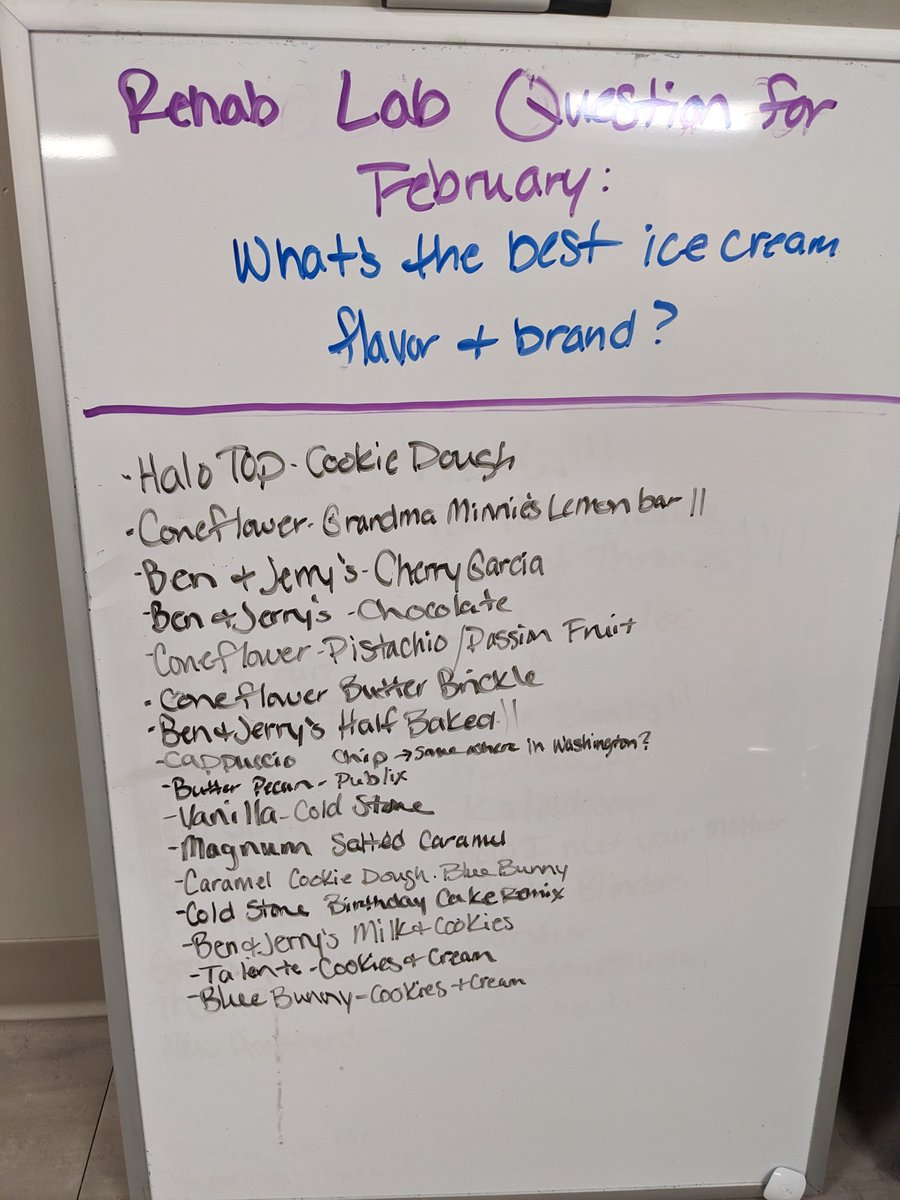 Rehab Lab Question for
February:
What's the best ice cream
flavor + brand?
·Halo TOP - Cookie Dough
·Coneflower - Grandma Minnie's Lemon bar ||
-Ben & Jerry's - Cherry Garcia
-Ben & Jerry's - Chocolate
-Coneflower - Pistachio / Passion Fruit
·Coneflower Butter Brickle
-Ben & Jerry's Half Baked ||
-Cappuccio Chip → Somewhere in Washington?
-Butter Pecan - Publix
-Vanilla - Cold Stone
-Magnum Salted Caramel
-Caramel Cookie Dough - Blue Bunny
-Cold Stone Birthday Cake Remix
-Ben & Jerry's Milk & Cookies
-Talente - Cookies & Cream
-Blue Bunny - Cookies + Cream
Blinders